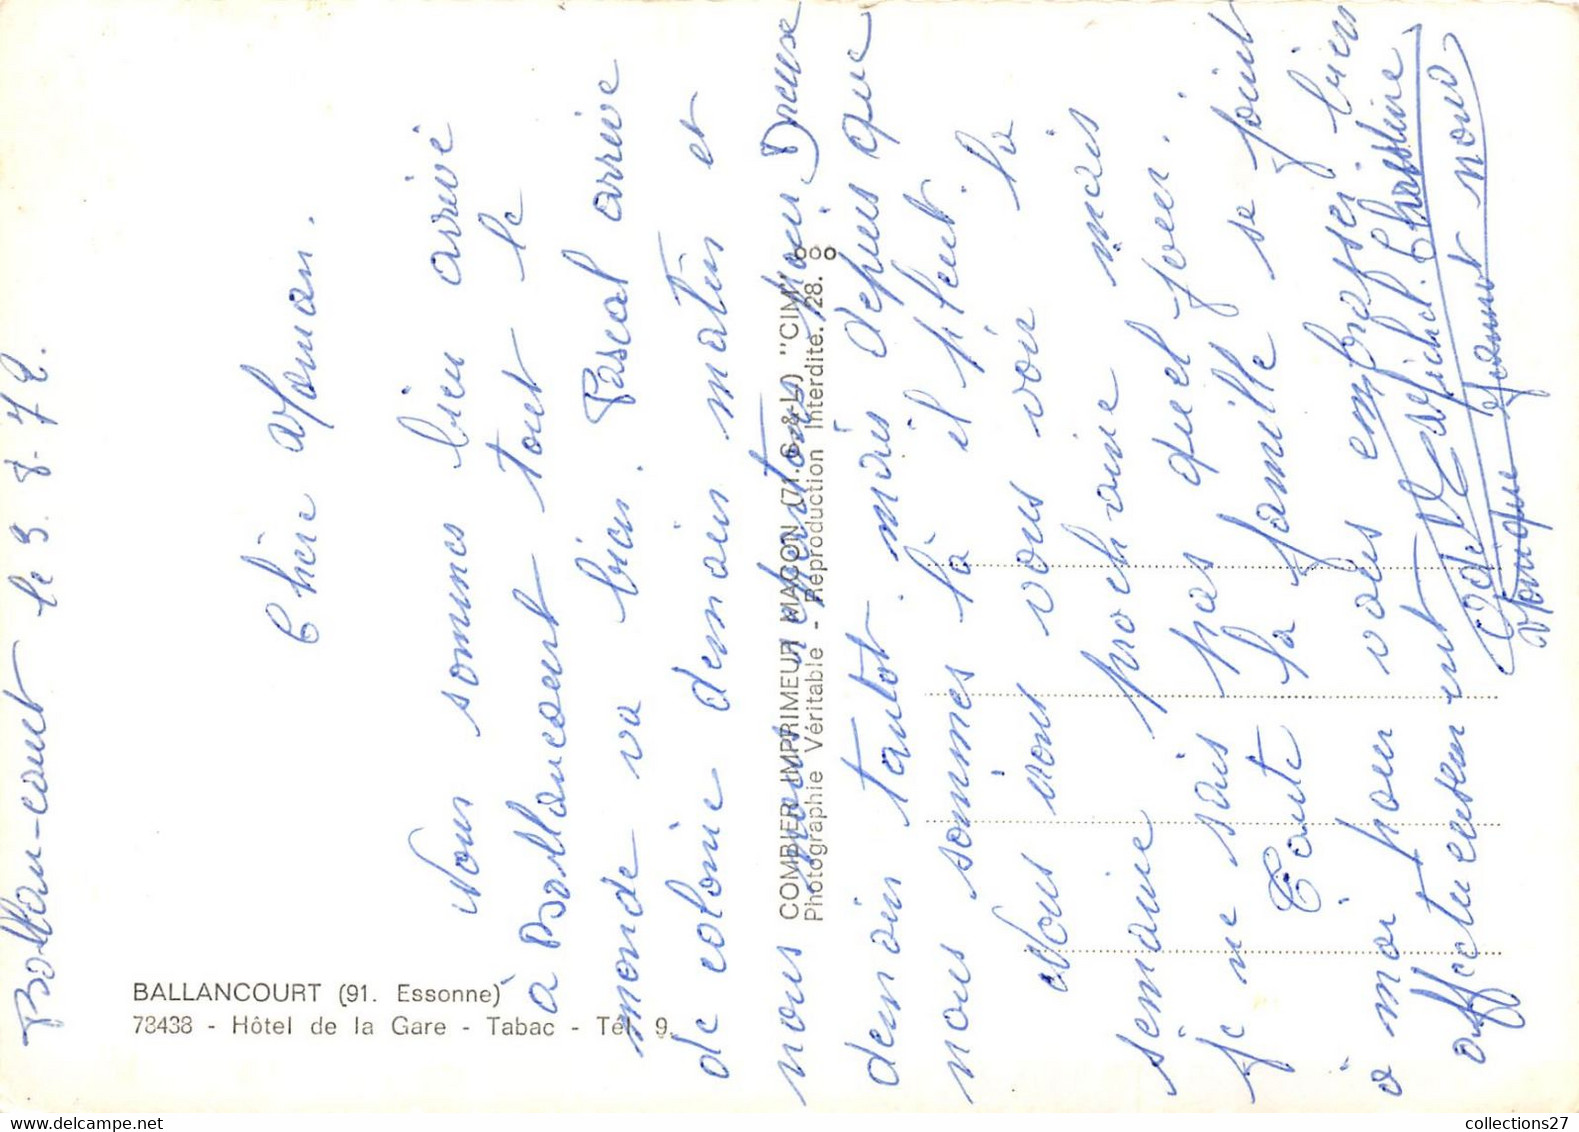 Ballancourt le 3.8.72.
Chère Maman.
Nous sommes bien arrivé
à Ballancourt tout le
monde va bien. Pascal arrive
de colonie demain matin et
nous nous partons pour Dreuse
demain tantot. mais depuis que
nous sommes là il pleut.
Nous irons vous voir la
semaine prochaine mais
je ne sais pas quel jour.
Toute la famille se joint
à moi pour vous embrasser bien
affectueusement
Michel. Christine
Monique Jeannot nous
BALLANCOURT (91. Essonne)
73438 - Hôtel de la Gare - Tabac - Tél. 9.
COMBIER IMPRIMEUR MACON (71. S-&-L) "CIM"
Photographie Véritable - Reproduction Interdite. 28. 8
www.delcampe.net
collections27